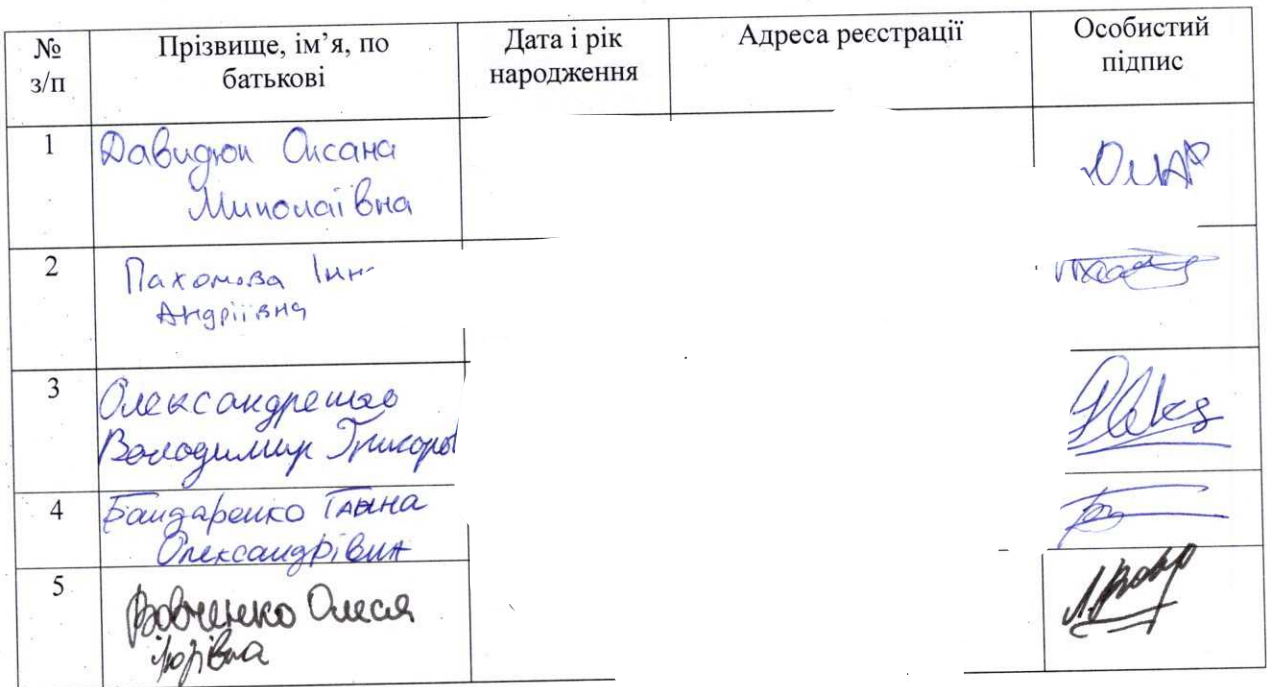 № з/п
Прізвище, ім’я, по батькові
Дата і рік народження
Адреса реєстрації
Особистий підпис
1
Давидюк Оксана
Миколаївна
2
Пахомова Інн
Андріївна
3
Олександренко
Володимир Григоров
4
Бандаренко Ганна
Олександрівна
5
Вовченко Олеся
Юріївна